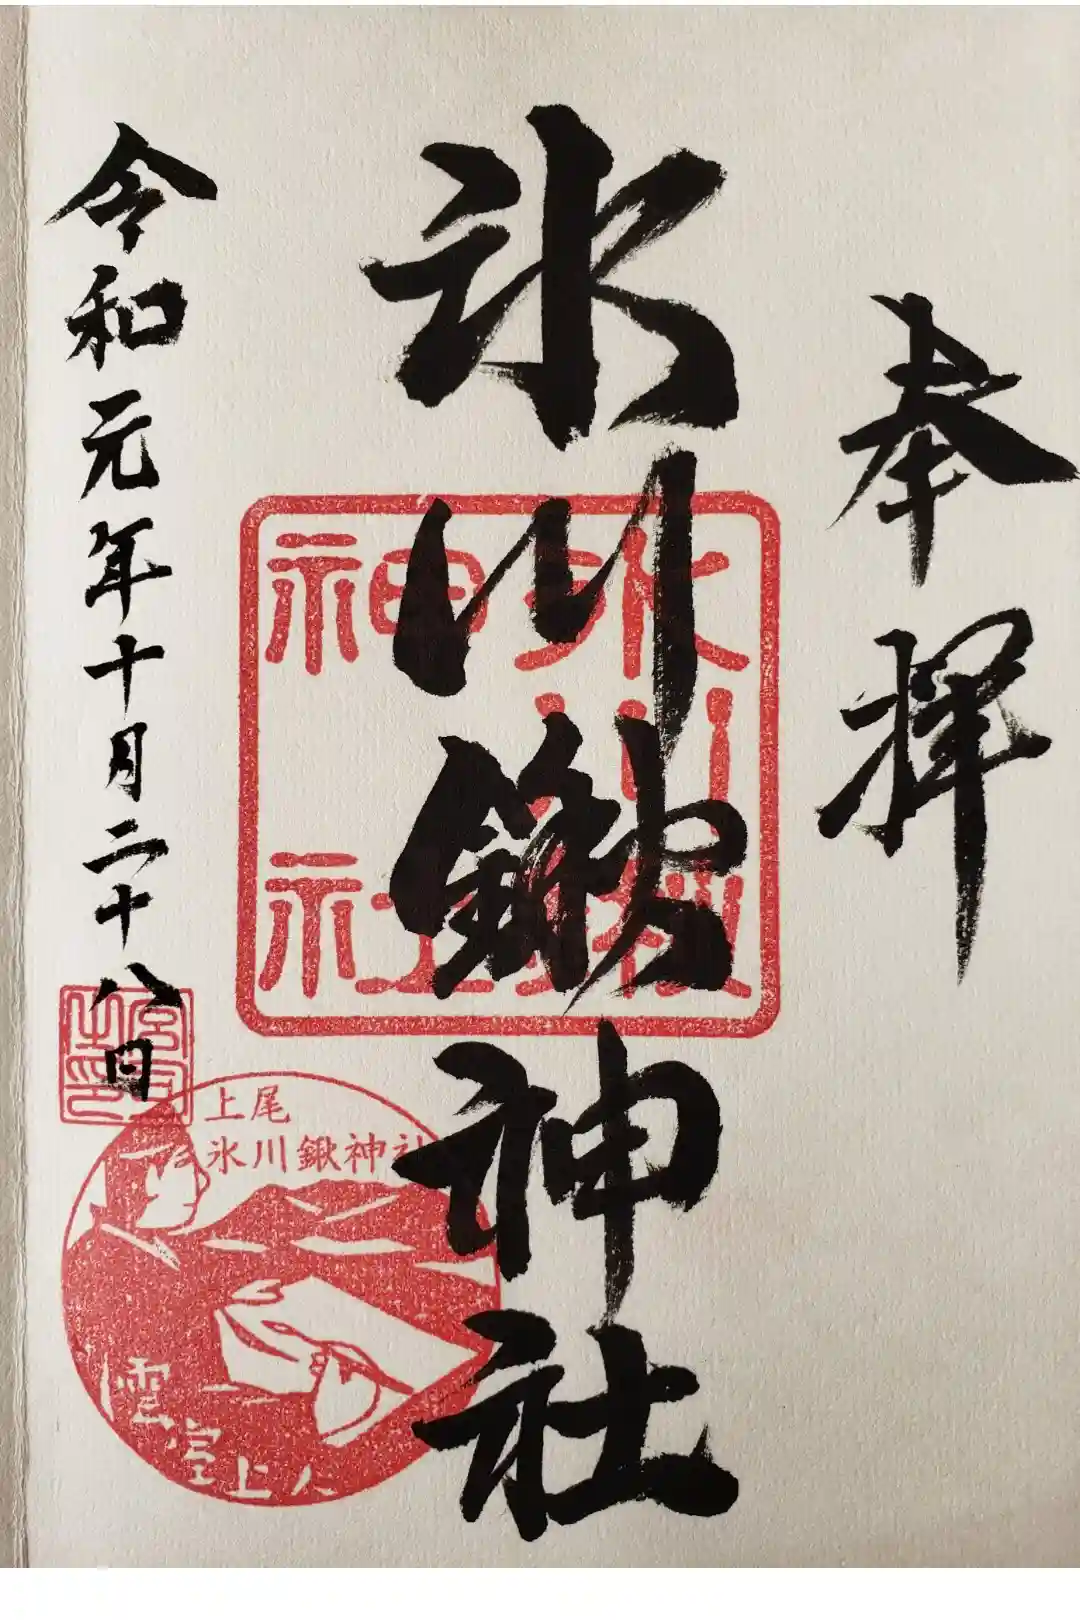 奉拝
氷川鍬神社
氷川鍬神社
令和元年十月二十八日
宮司之印
上尾
氷川鍬神社
雲室上人